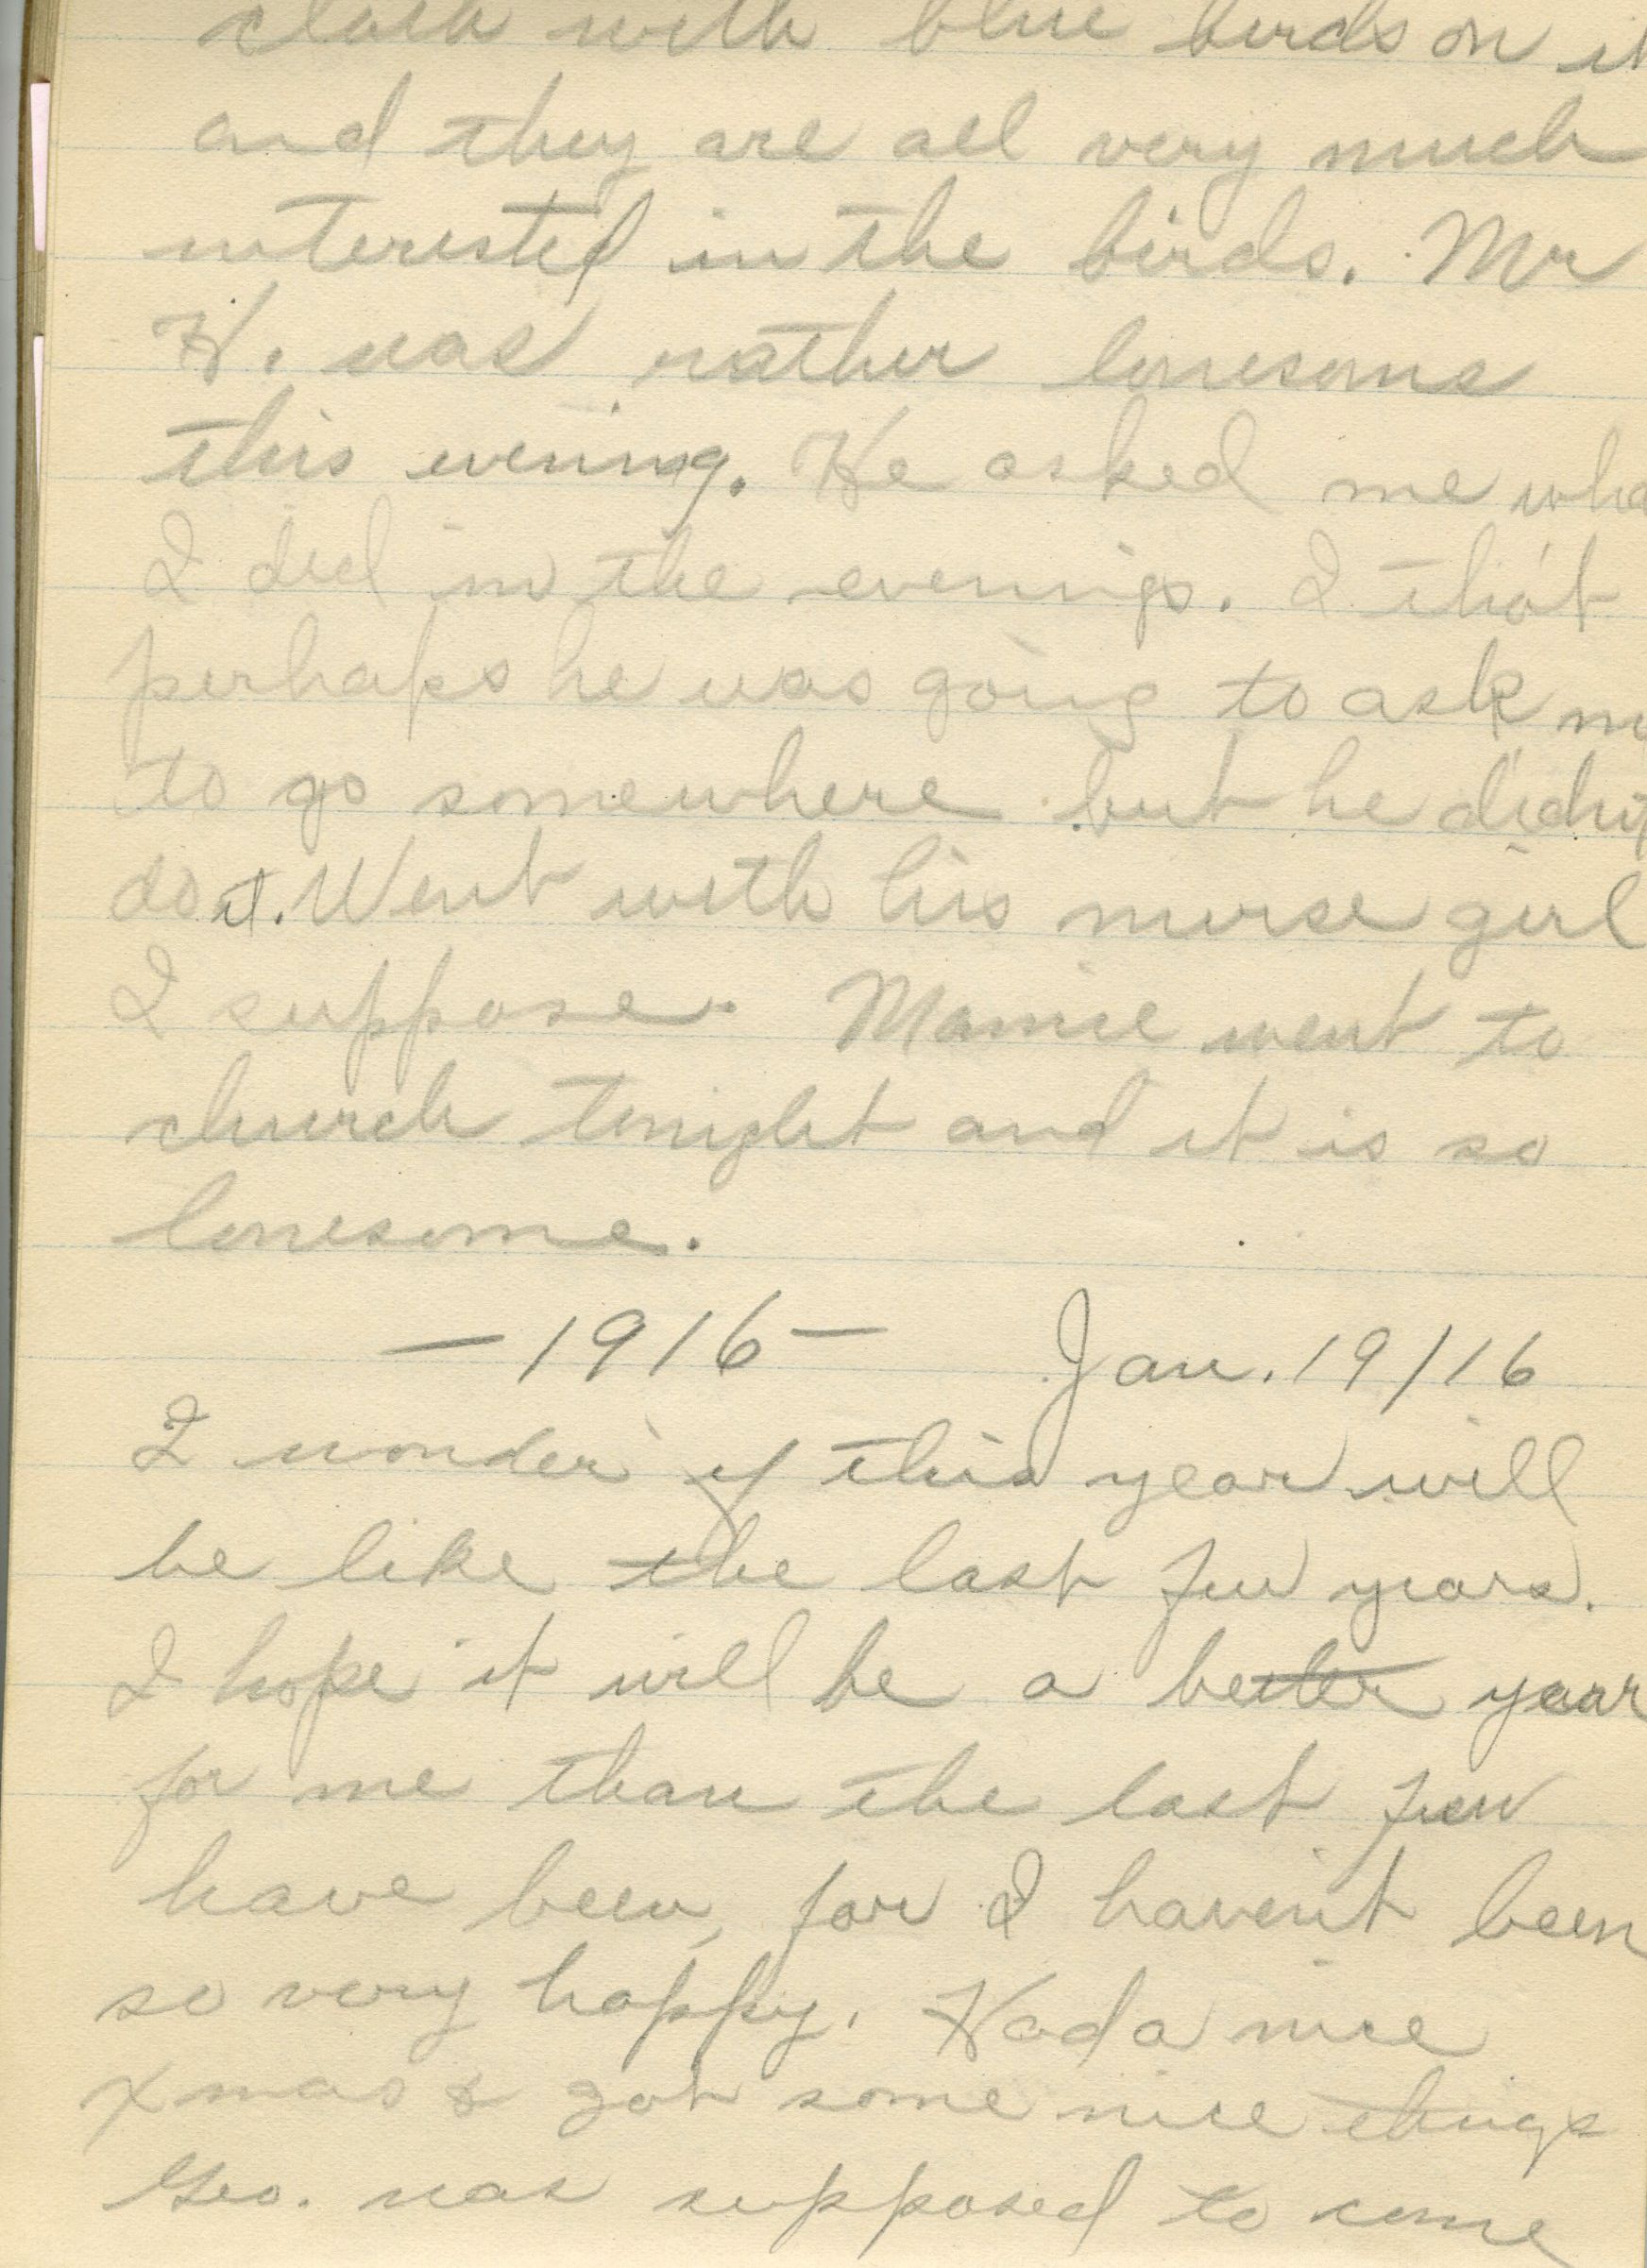 cloth with blue birds on it
and they are all very much
interested in the birds. Mr
H. was rather lonesome
this evening. He asked me wha
I did in the evenings. I tho't
perhaps he was going to ask m
to go somewhere but he didn't
do it. Went with his nurse girl
I suppose. Mamie went to
church tonight and it is so
lonesome.
— 1916 — Jan. 19/16
I wonder if this year will
be like the last few years.
I hope it will be a better year
for me than the last few
have been, for I haven't been
so very happy. Had a nice
Xmas & got some nice things
Geo. was supposed to come